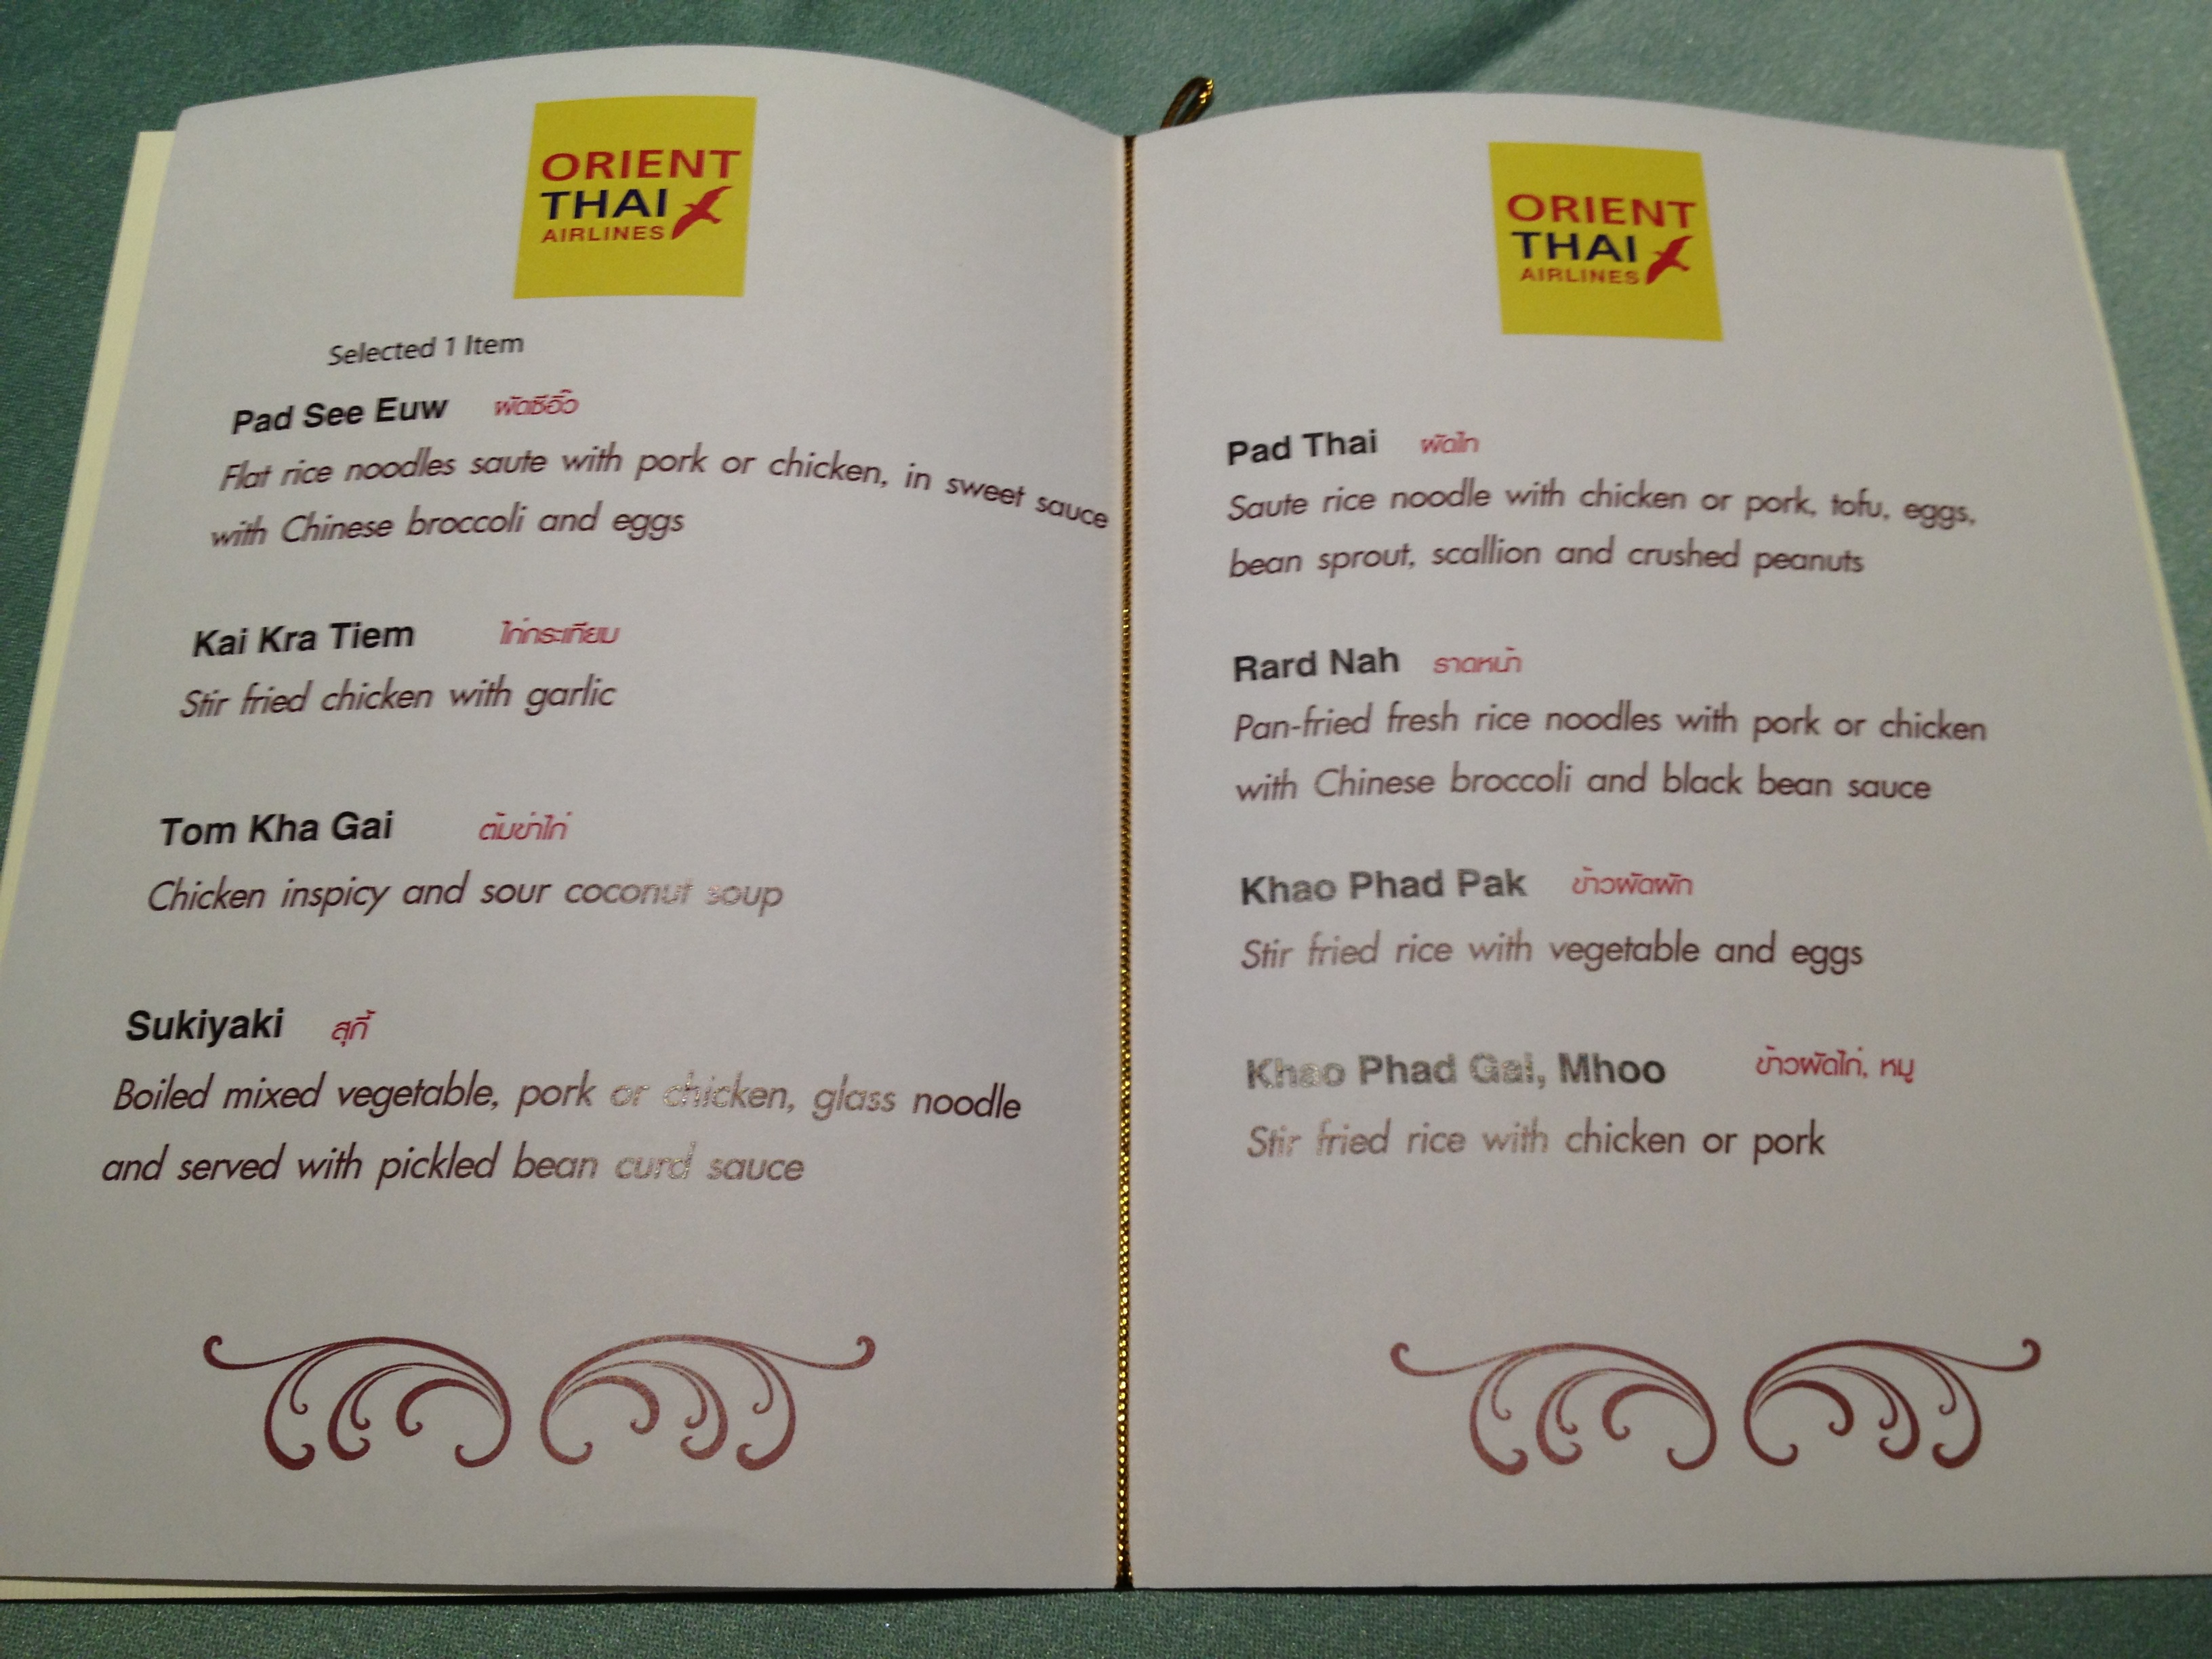 ORIENT
THAI
AIRLINES
Selected 1 Item
Pad See Euw ผัดซีอิ๊ว
Flat rice noodles saute with pork or chicken, in sweet sauce
with Chinese broccoli and eggs
Kai Kra Tiem ไก่กระเทียม
Stir fried chicken with garlic
Tom Kha Gai ต้มข่าไก่
Chicken inspicy and sour coconut soup
Sukiyaki สุกี้
Boiled mixed vegetable, pork or chicken, glass noodle
and served with pickled bean curd sauce
ORIENT
THAI
AIRLINES
Pad Thai ผัดไท
Saute rice noodle with chicken or pork, tofu, eggs,
bean sprout, scallion and crushed peanuts
Rard Nah ราดหน้า
Pan-fried fresh rice noodles with pork or chicken
with Chinese broccoli and black bean sauce
Khao Phad Pak ข้าวผัดผัก
Stir fried rice with vegetable and eggs
Khao Phad Gai, Mhoo ข้าวผัดไก่, หมู
Stir fried rice with chicken or pork